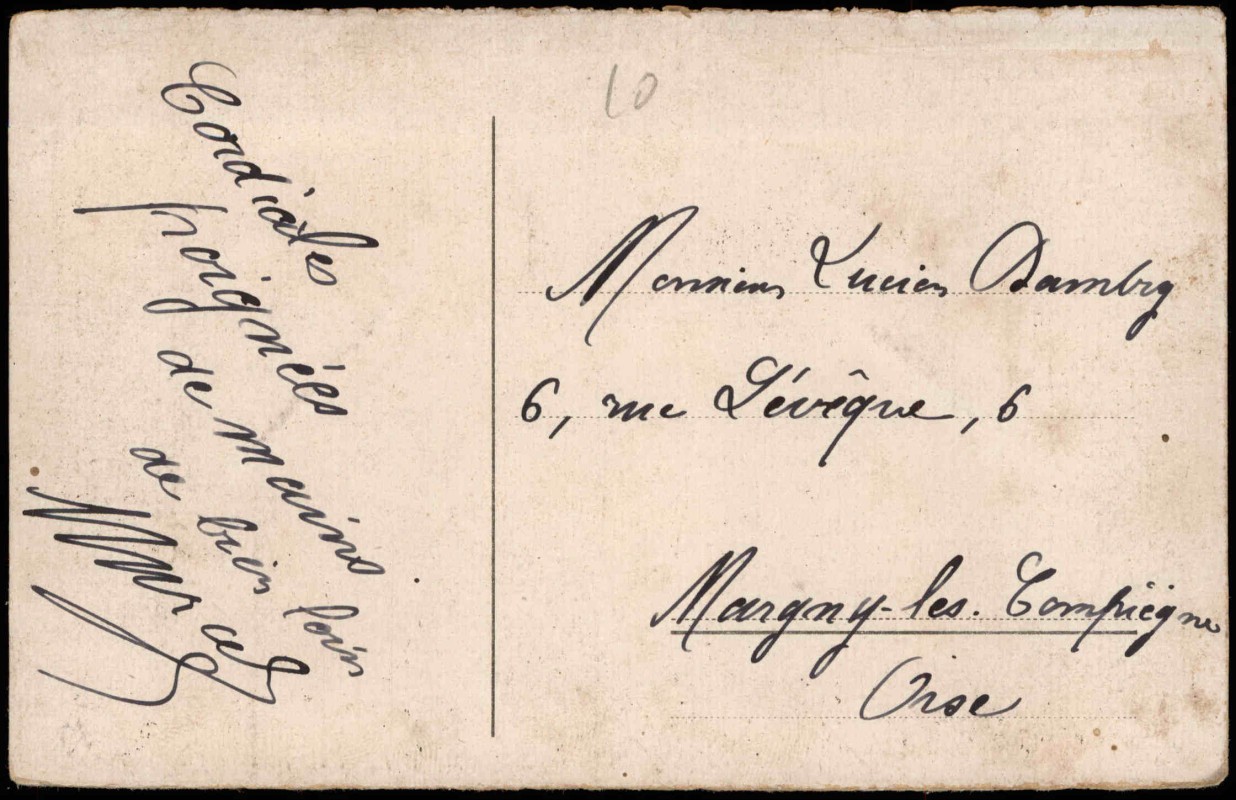 Cordiales
poignées
de mains
de bien loin
10
Monsieur Lucien Dambry
6, rue Lévêque, 6
Margny-les-Compiègne
Oise